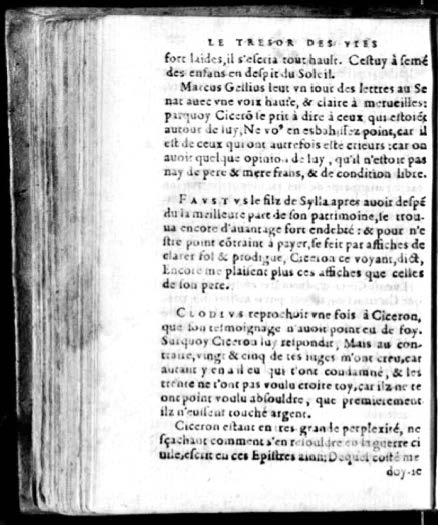 LE TRESOR DES VIES
fort laides, il s'escria tout hault. Cestuy à semé
des enfans en despit du Soleil.
Marcus Gellius leut vn iour des lettres au Se
nat auec vne voix haute, & claire à merueilles:
parquoy Cicerō se prit à dire à ceux qui estoiēt
autour de luy, Ne vo⁹ en esbahissez point, car il
est de ceux qui ont autrefois esté crieurs: car on
auoit quelque opinion de luy, qu'il n'estoit pas
nay de pere & mere frans, & de condition libre.
FAVSTVS le filz de Sylla apres auoir despé
du la meilleure part de son patrimoine, se trou-
ua encore d'auantage fort endebté: & pour n'e
stre point cōtraint à payer, se feit par affiches de
clarer fol & prodigue, Ciceron ce voyant, dict,
Encore me plaisent plus ces affiches que celles
de son pere.
CLODIVS reprochoit vne fois à Ciceron,
que son tesmoignage n'auoit point eu de foy.
Surquoy Ciceron luy respondit, Mais au con-
traire, vingt & cinq de tes iuges m'ont creu, car
autant y en a il eu qui t'ont condamné, & les
trente ne t'ont pas voulu croire toy, car ilz ne te
ont point voulu absouldre, que premierement
ilz n'eussent touché argent.
Ciceron estant en tres grande perplexité, ne
sçachant comment s'en resouldre en la guerre ci
uile, escrit en ces Epistres ainsi: Dequel costé me
doy-ie